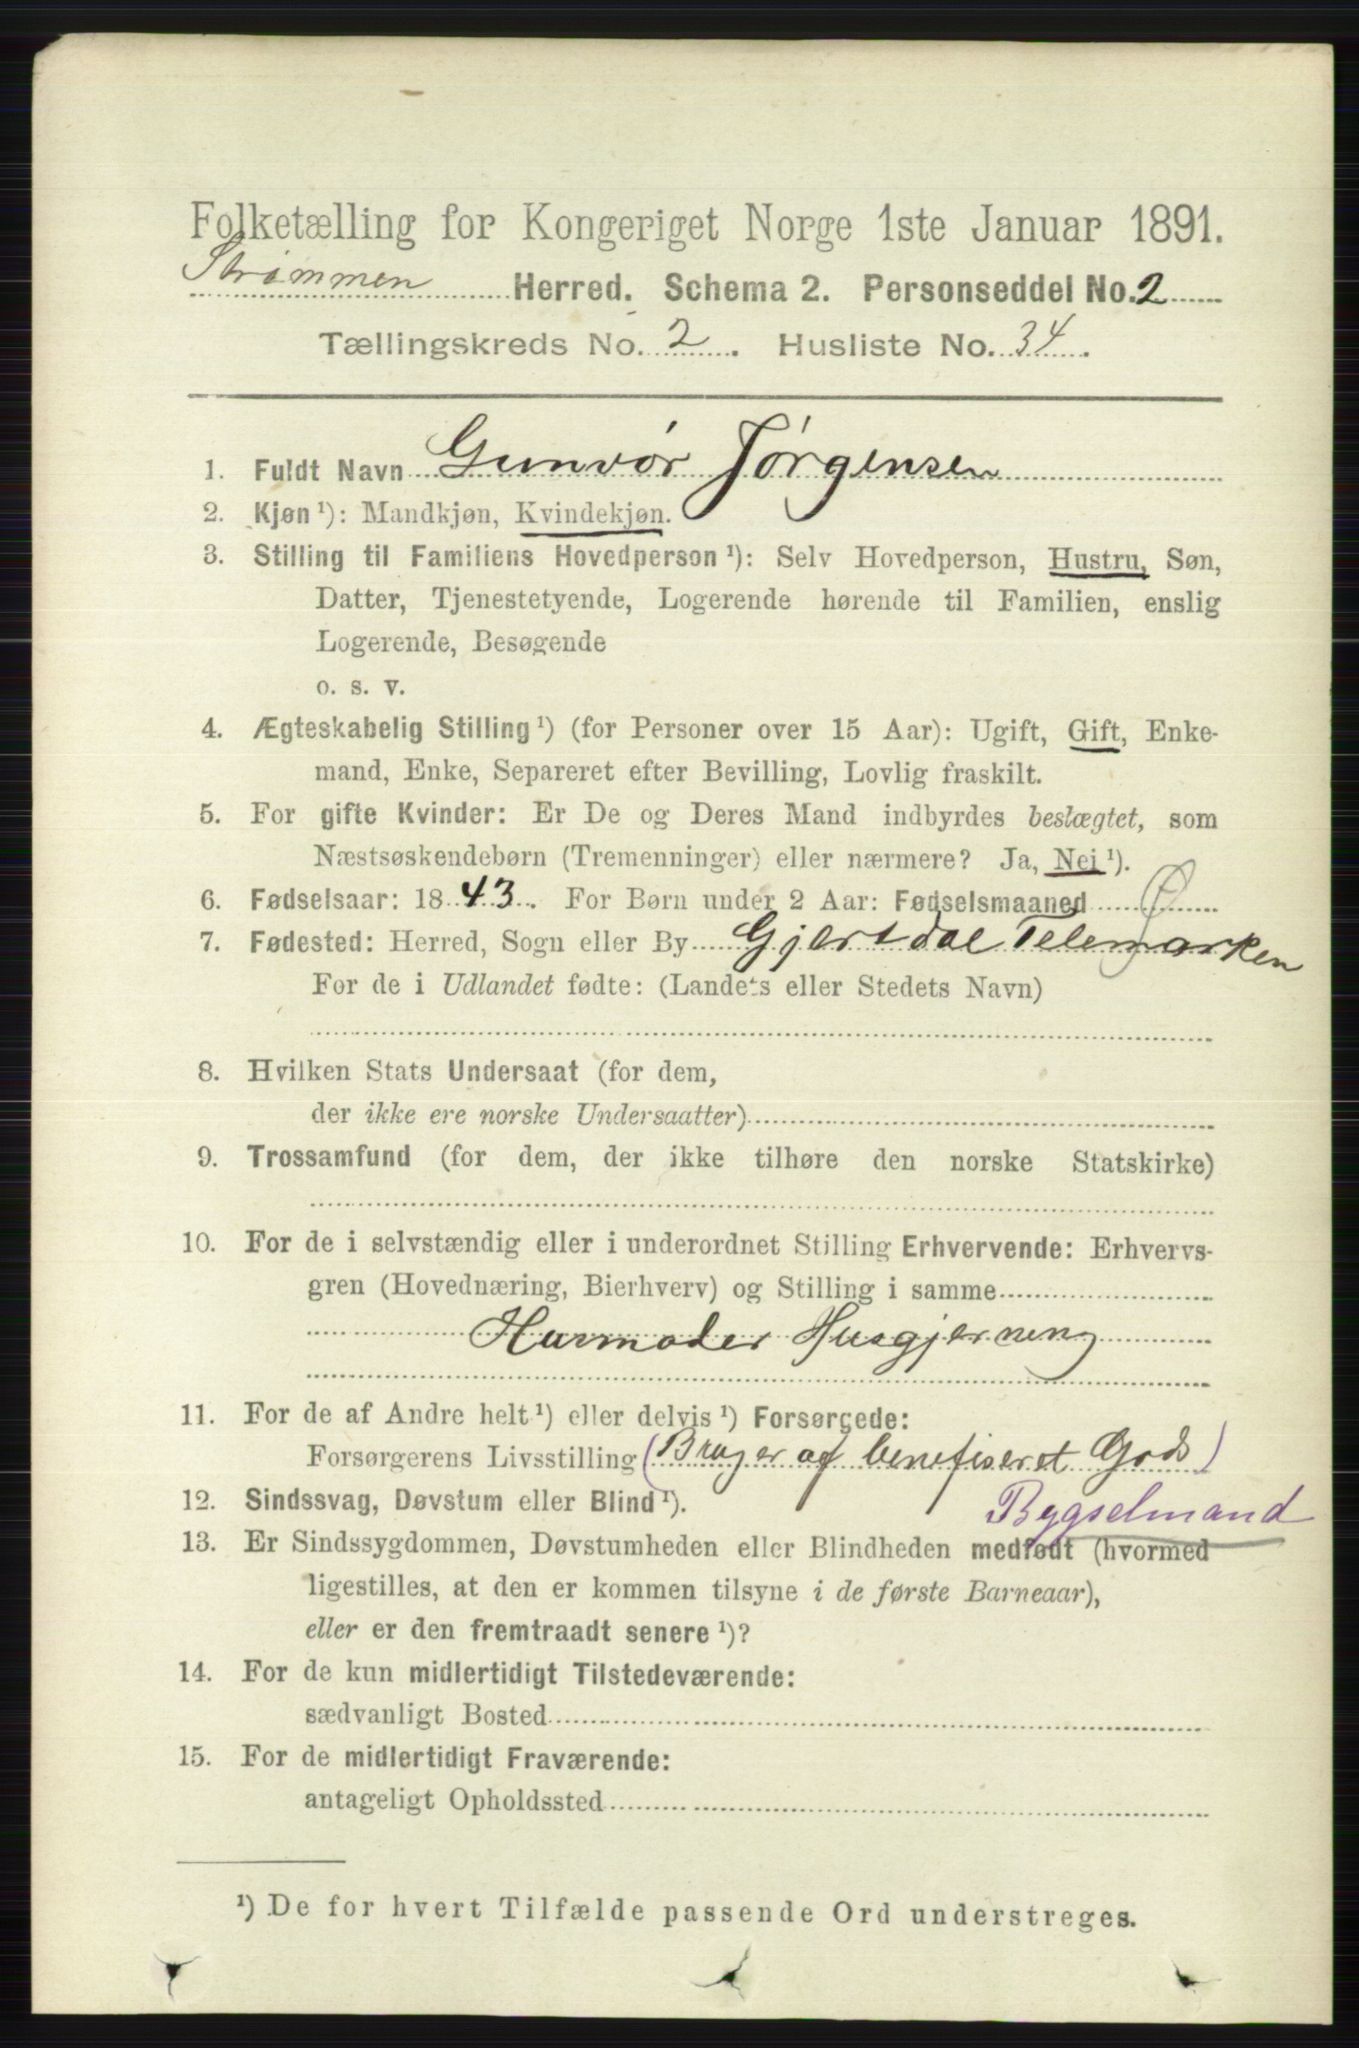 Folketælling for Kongeriget Norge 1ste Januar 1891.
Strømmen Herred. Schema 2. Personseddel No. 2
Tællingskreds No. 2. Husliste No. 34.
1. Fuldt Navn Gunvór Jórgensen
2. Kjøn ¹): Mandkjøn, Kvindekjøn.
3. Stilling til Familiens Hovedperson ¹): Selv Hovedperson, Hustru, Søn,
Datter, Tjenestetyende, Logerende hørende til Familien, enslig
Logerende, Besøgende
o. s. v.
4. Ægteskabelig Stilling ¹) (for Personer over 15 Aar): Ugift, Gift, Enke-
mand, Enke, Separeret efter Bevilling, Lovlig fraskilt.
5. For gifte Kvinder: Er De og Deres Mand indbyrdes beslægtet, som
Næstsøskendebørn (Tremenninger) eller nærmere? Ja, Nei ¹).
6. Fødselsaar: 1843. For Børn under 2 Aar: Fødselsmaaned Ø
7. Fødested: Herred, Sogn eller By Gjerdal Telemarken
For de i Udlandet fødte: (Landets eller Stedets Navn)
8. Hvilken Stats Undersaat (for dem,
der ikke ere norske Undersaatter)
9. Trossamfund (for dem, der ikke tilhøre den norske Statskirke)
10. For de i selvstændig eller i underordnet Stilling Erhvervende: Erhvervs-
gren (Hovednæring, Bierhverv) og Stilling i samme
Husmoder Husgjerning
11. For de af Andre helt ¹) eller delvis ¹) Forsørgede:
Forsørgerens Livsstilling (Bruger af beneficeret Gods)
12. Sindssvag, Døvstum eller Blind ¹). Bygselmand
13. Er Sindssygdommen, Døvstumheden eller Blindheden medfødt (hvormed
ligestilles, at den er kommen tilsyne i de første Barneaar),
eller er den fremtraadt senere ¹)?
14. For de kun midlertidigt Tilstedeværende:
sædvanligt Bosted
15. For de midlertidigt Fraværende:
antageligt Opholdssted
¹) De for hvert Tilfælde passende Ord understreges.